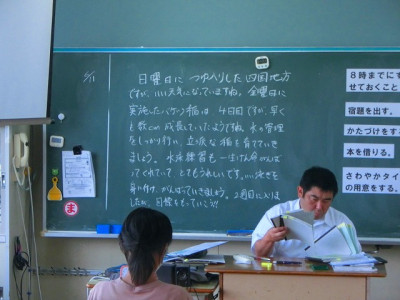 日曜日につゆ入りした四国地方
ですが、いい天気になっていますね。金曜日に
実施したバケツ稲は4日目ですが、早く
も数cm成長していたようですね。水の管理
をしっかり行い、立派な稲を育てていき
ましょう。水泳練習も一生けん命がんば
ってくれていて とてもうれしいです。泳ぎを
身に付け、がんばっていきましょう。2週目に入りま
したが、目標をもっていこう!!
8時までに
せておくこと
宿題を出す。
かたづけをする
本を借りる。
さわやかタイ
の用意をする。
ま